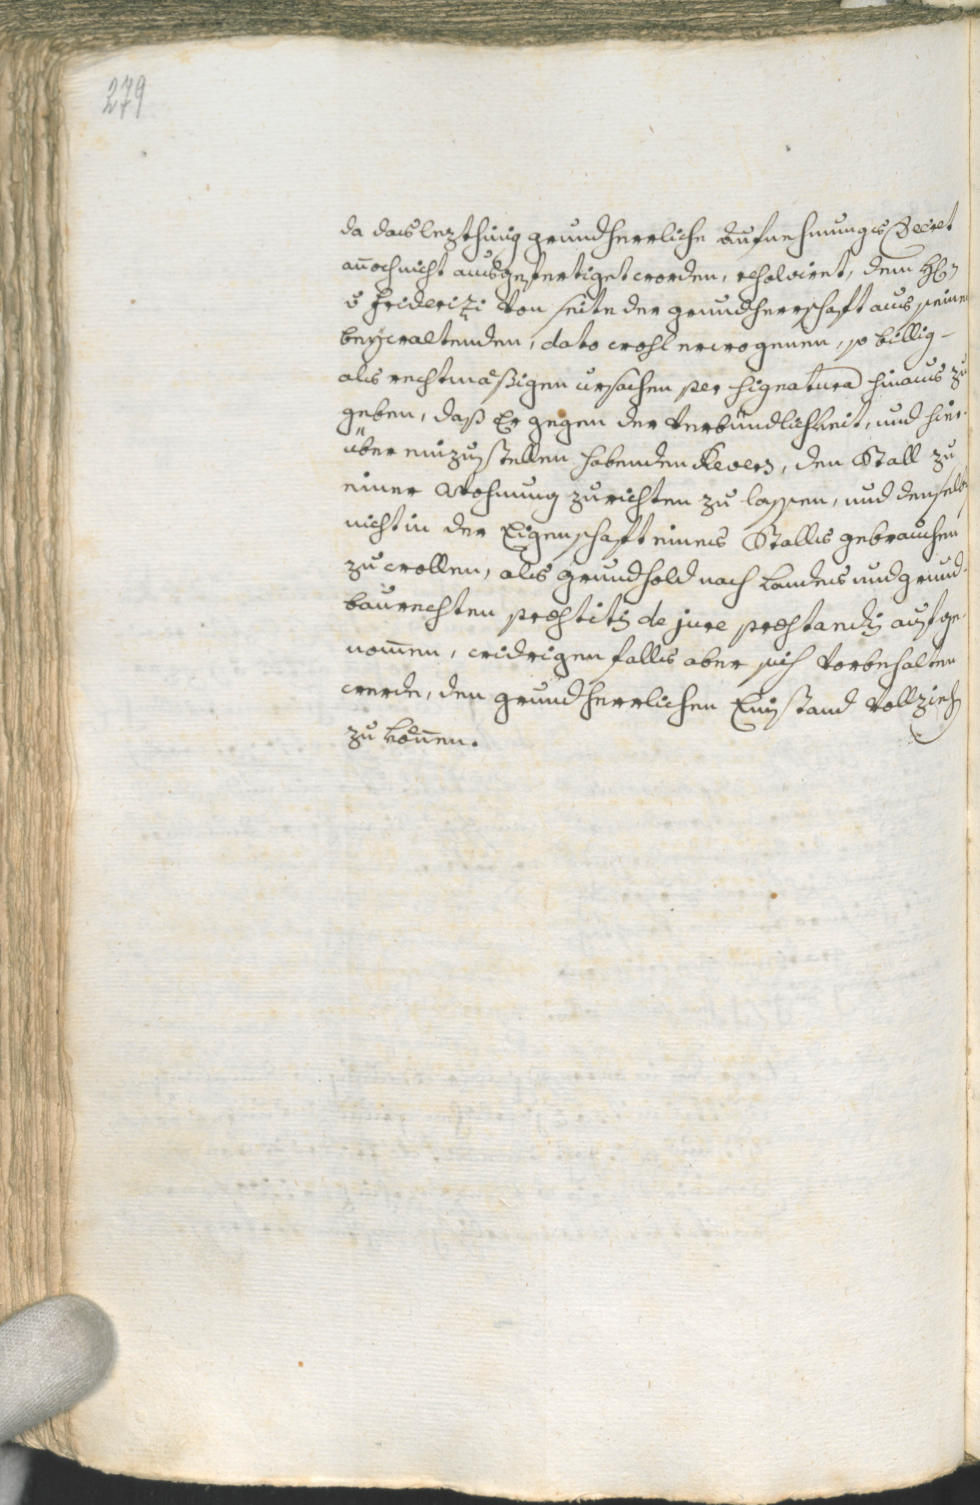 279
da das lezthinig grundherrliche Aufnehmungs Decret
annoch nicht ausgefertiget worden, resolviret, dem H:
v Friderizi von seite der grundherrschaft aus seinen
beÿwaltenden, dato wohl erwogenen, so billig-
als rechtmäßigen ursachen per signatura hinaus zu
geben, daß Er gegen der Verbündlichkeit, und hier-
über einzustellen habenden Revers, den Stall zu
einer Wohnung zurichten zu lassen, und denselb
nicht in der Eigenschaft eines Stalls gebrauchen
zu wollen, als grundhold nach Lands und grund-
baurechten præstitis de jure præstandis aufge-
nommen, widrigen falls aber sich vorbehalten
werde, den grundherrlichen Einstand vollzieh
zu können.